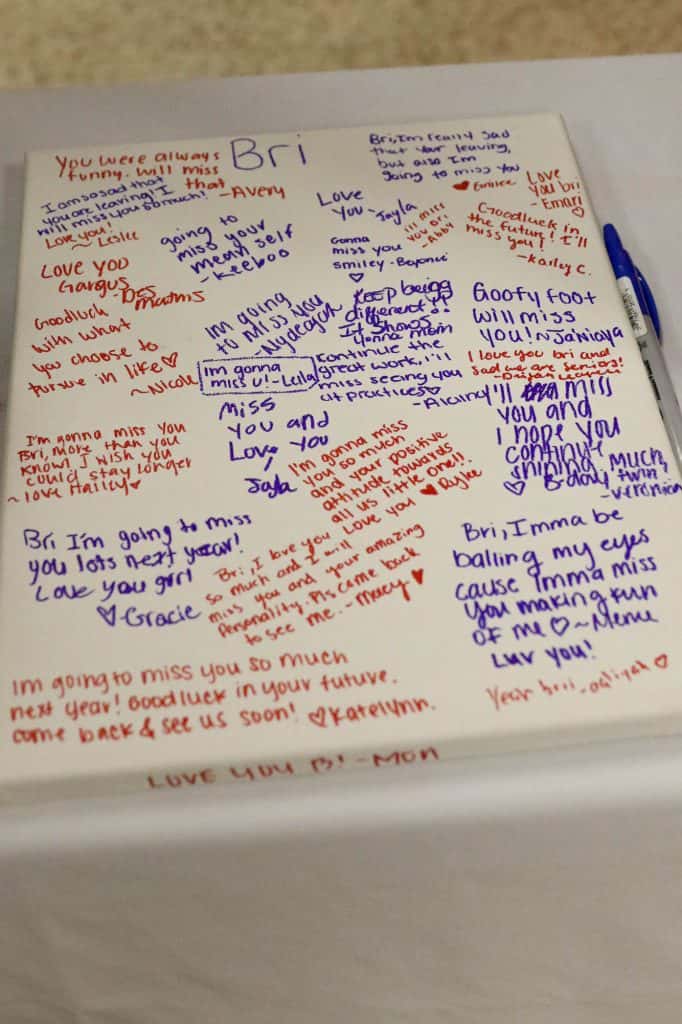 Bri
You were always
funny. will miss
that
-Avery
I am so sad that
you are leaving! I
will miss you so much!
Love you!
~Leslie
Bri, Im really sad
that your leaving,
but also Im
going to miss you
Love
you bri
-Emari
Love
You -Jayla
I'll miss
you Bri
-Abby
Goodluck in
the future! I'll
miss you!
-Karley C.
going to
miss your
mean self
-keeboo
Gonna
miss you
smiley -Beyoncé
Love you
Gargus
-Des
Mathis
Goodluck
with what
you choose to
pursue in life♡
~Nicole
Im going
to miss you
Keep being
different!!
It shows
Im gonna
miss u! -Lala
continue the
great work, I'll
miss seeing you
at practices♡
Goofy foot
will miss
you! ~Ja'Niaya
I love you bri and
sad we are seniors!
Miss
you and
Love you
Jayla
I'll miss
you and
I hope you
continue
shining. Much,
♡ B-day twin,
I'm gonna miss you
Bri, more than you
know! I wish you
could stay longer
~love Hailey♥
I'm gonna miss
you so much
and your positive
attitude towards
all us little one!!
Love you ♥ Rylee
Bri I'm going to miss
you lots next year!
Love you girl
♡-Gracie
Bri, I love you
so much and I will
miss you and your amazing
personality. Pls come back
to see me. -Macy ♥
Bri, Imma be
balling my eyes
cause Imma miss
You making fun
of me ♡ ~Menu
Luv you!
Im going to miss you so much
next year! Good luck in your future.
come back & see us soon! ♡Katelynn.
LOVE YOU B! -Mon